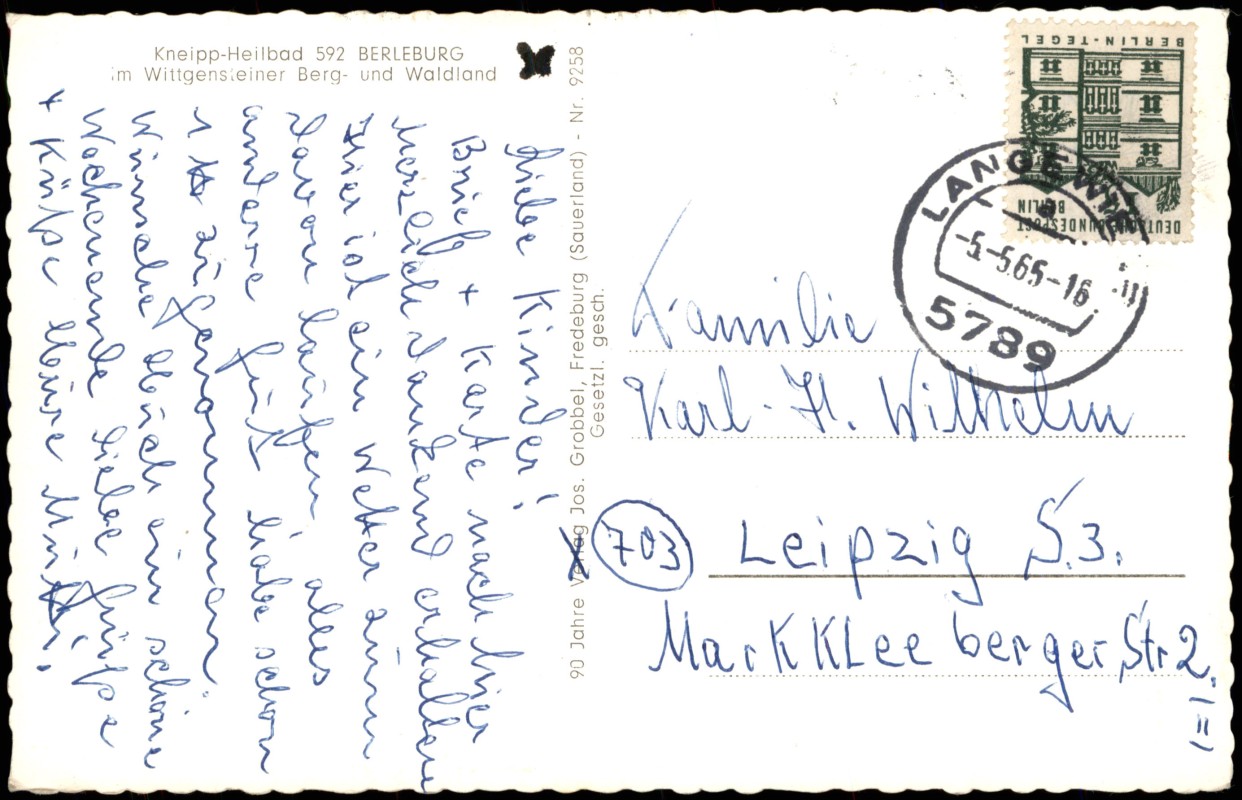 Kneipp-Heilbad 592 BERLEBURG
im Wittgensteiner Berg- und Waldland
Liebe Kinder!
Brief + Karte nach hier
herzlich dankend erhalten
Hier ist ein Wetter zum
Davon laufen, alles
andere gut habe schon
zugenommen.
Wünsche Euch ein schöne
Wochenende liebe Grüße
+ Küße Eure
90 Jahre Verlag Jos. Grobbel, Fredeburg (Sauerland) - Nr. 9258
Gesetzl. gesch.
DEUTSCHE BUNDESPOST
BERLIN
BERLIN-TEGEL
LANGEWIE
-5.-5.65-16
5789
Familie
Karl-H. Wilhelm
703 Leipzig S.3.
Markkleeberger Str 2